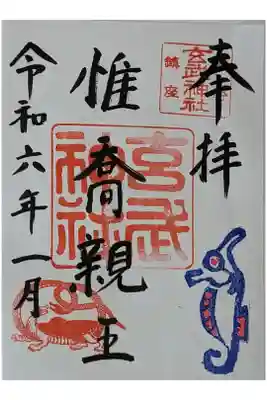 奉拝
玄武神社
鎮座
惟喬親王
玄武
神社
令和六年一月